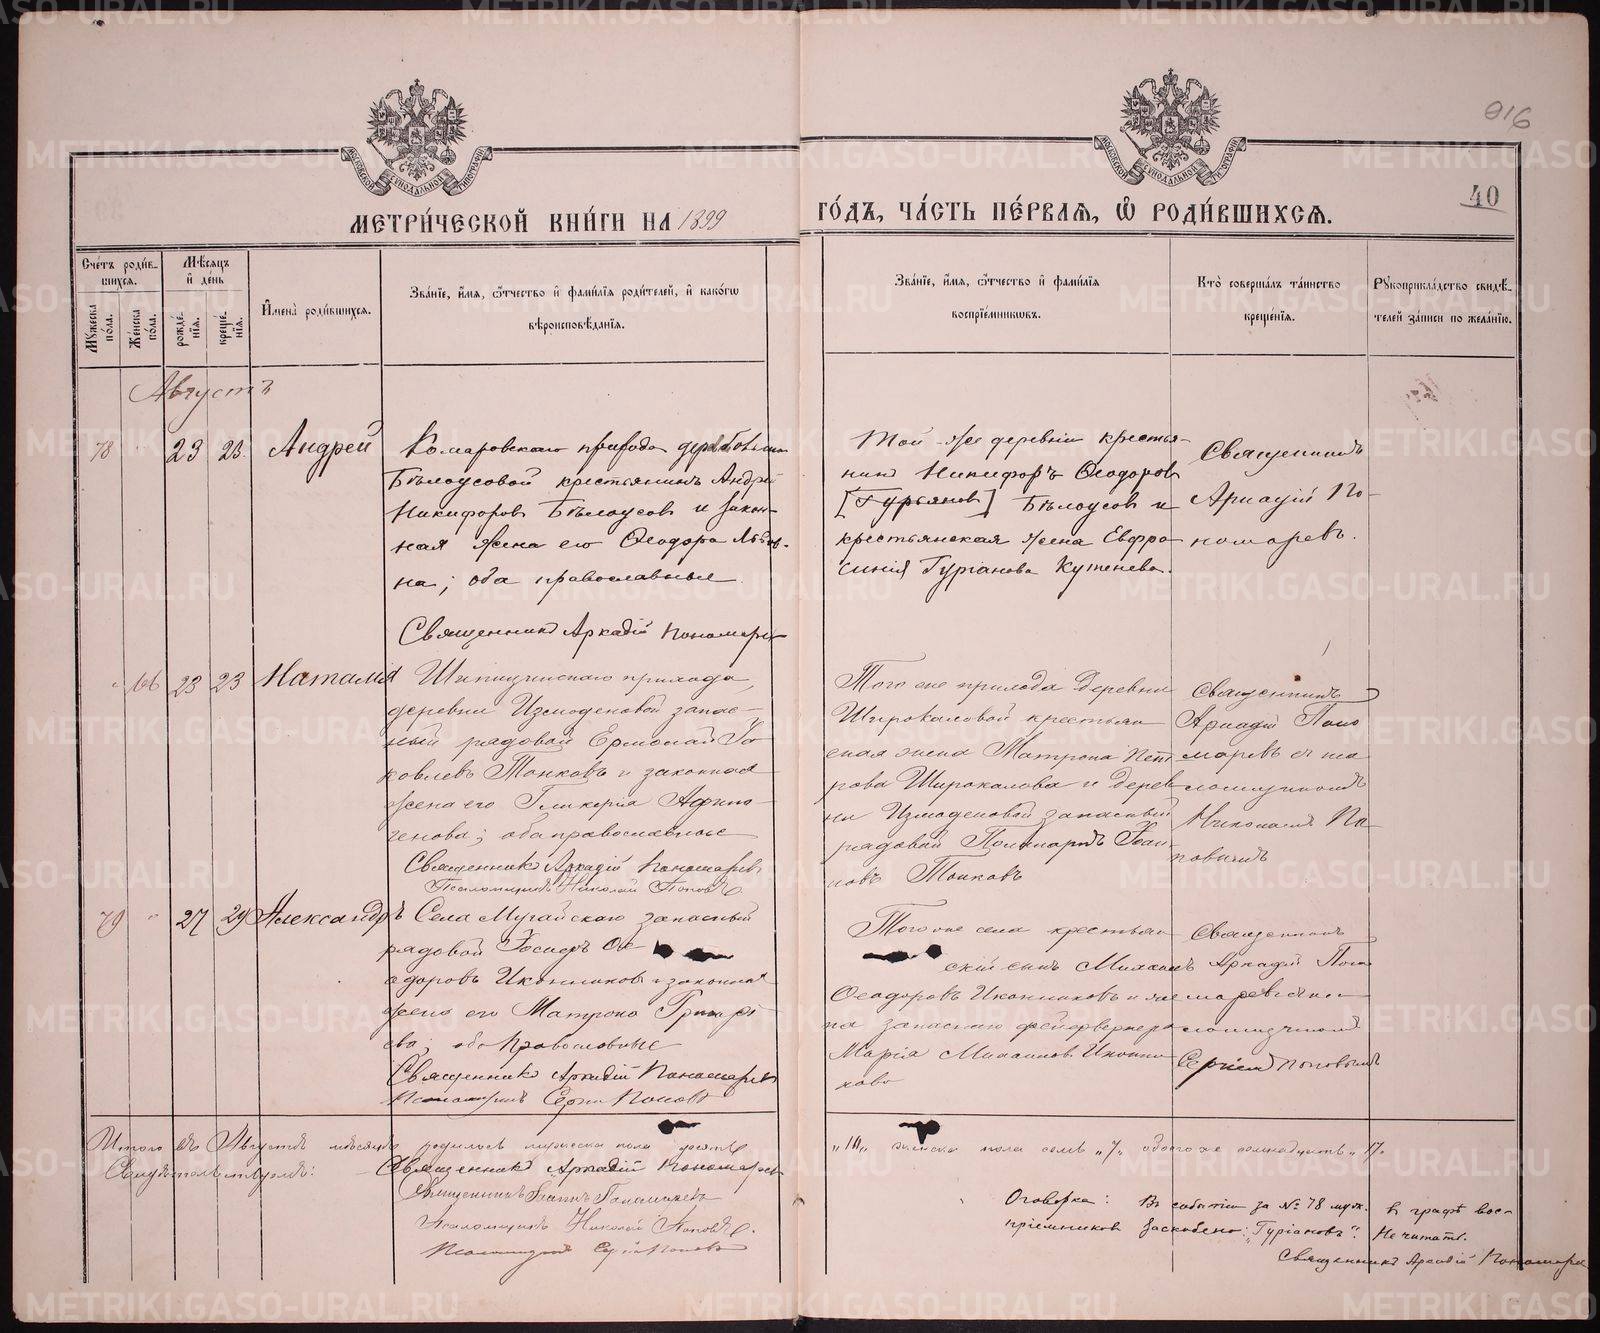 916
40
МЕТРИ́ЧЕСКОЙ КНИ́ГИ НА 1899
ГО́ДЪ, ЧА́СТЬ ПЕ́РВАѦ, Ѡ҆ РОДИ́ВШИХСѦ.
Сче́тъ роди́в-
шихсѧ.
Мꙋ́жеска пола.
Же́нска пола.
Мѣ́сѧцъ и҆ де́нь
рожде́-нїѧ.
креще́-нїѧ.
И҆мена̀ роди́вшихсѧ.
Зва́нїе, и҆́мѧ, ѻ҆́тчество и҆ фами́лїѧ роди́телей, и҆ како́гѡ
вѣроисповѣ́данїѧ.
Зва́нїе, и҆́мѧ, ѻ҆́тчество и҆ фами́лїѧ
воспрїе́мникѡвъ.
Кто̀ соверша́лъ та́инство
креще́нїѧ.
Рꙋкоприкла́дство свидѣ́-
телей за́писи по жела́нїю.
Августъ
78 " 23 23 Андрей
Комаровскаго прихода дер.
Бѣлоусовой крестьянинъ Андрей
Никифоровъ Бѣлоусовъ и закон-
ная жена его Ѳеодора
на; оба православные
Священникъ Аркадій Пономаревъ
Той-же деревни крестья-
нинъ Никифоръ Ѳеодоровъ
[Гурьяновъ] Бѣлоусов и
крестьянская жена Евфро
синія Гуріанова Кутенева.
Священникъ
Аркадій По-
номаревъ.
" 66 23 23 Наталія
Шипицинскаго прихода,
деревни Измоденовой запас-
ный рядовой Ермолай Іа
ковлевъ Топковъ и законная
жена его Гликерія Афино-
генова; оба православные
Священникъ Аркадій Пономаревъ
Псаломщикъ Николай Поповъ
Того же прихода деревни
Широкаловой крестьян
ская жена Матрона Пет
рова Широкалова и дерев
ни Измоденовой запасный
рядовой Іоан-
новъ Топковъ
Священникъ
Аркадій Поно
маревъ съ пса
ломщикомъ
Николаемъ По
повымъ
79 " 27 29 Александръ
Села Мугайскаго запасный
рядовой Іосифъ Ѳе-
одоровъ Иконниковъ и законная
жена его Матрона Григорье
ва; оба Православные
Священникъ Аркадій Пономаревъ
Псаломщикъ Сергій Поповъ
Того же села крестьян
скій сынъ Михаилъ
Ѳеодоровъ Иконниковъ и же
на запаснаго фейерверкера
Марія Михаилова Иконни
кова
Священникъ
Аркадій Поно
маревъ съ пса
ломщикомъ
Сергіем Поповымъ
Итого въ Августѣ мѣсяцѣ родилось мужеска пола десять
„10„ женска пола семь „7„ обоего же семнадцать „17„
Свидѣтельствуемъ:
Священникъ Аркадій Пономаревъ
Священникъ Іоаннъ
Псаломщикъ Николай Поповъ.
Псаломщикъ Сергій Поповъ
Оговорка: Въ событіи за № 78 муж. въ графѣ вос-
пріемников заскоблено: „Гуріановъ“. Не читать.
Священникъ Аркадій Пономарев
METRIKI.GASO-URAL.RU